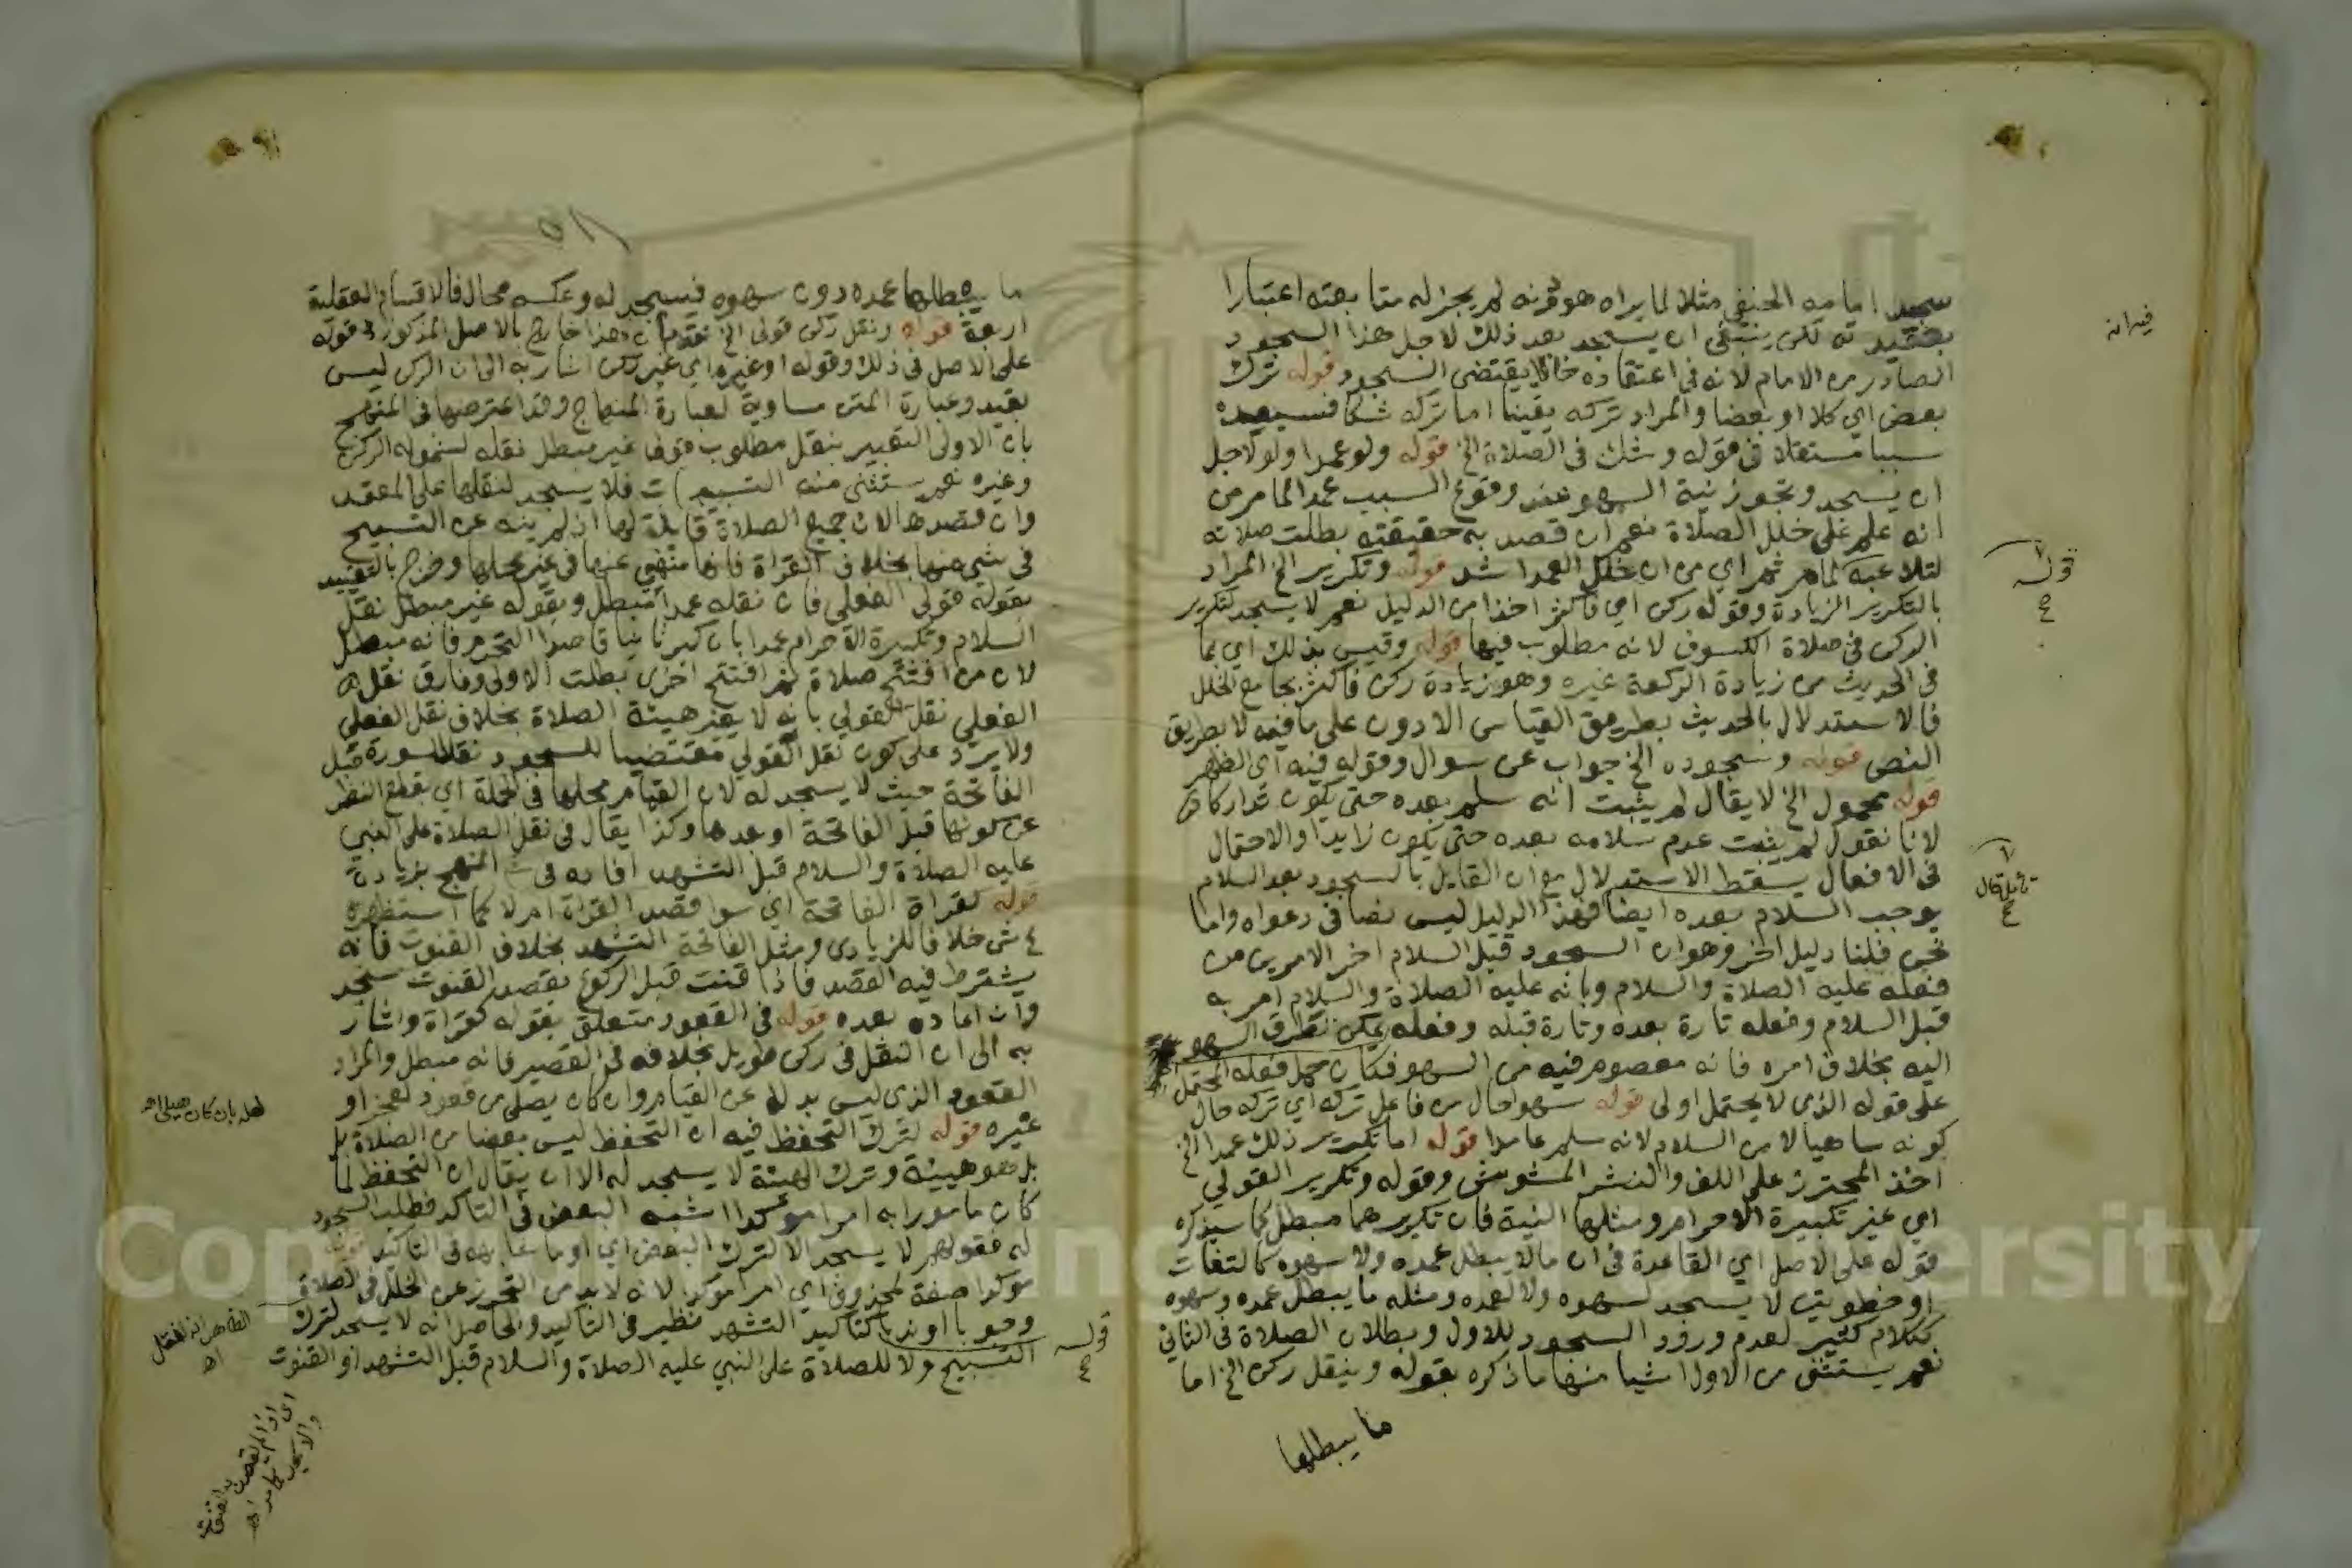 سجد امامه الحنفي مثلا لما يراه هو فانه لم يجز له متابعته اعتبارا
بعقيدته لكن ينبغي ان يسجد بعد ذلك لاجل هذا السجود
الصادر من الامام لانه في اعتقاده خلل يقتضي السجود قوله ترك
بعض اي كلا او بعضا والمراد تركه يقينا اما تركه شكا فسيعده
سببا مستقلا في قوله وشك في الصلاة الخ قوله ولو عمدا ولو لاجل
ان يسجد وتجوز نية السهو عند وقوع السبب عمدا لما مر من
انه علم على خلل الصلاة نعم ان قصد به حقيقته بطلت صلاته
لتلاعبه كما مر ثم اي من ان خلل العمد اشد قوله وتكرير الخ المراد
بالتكرير الزيادة وقوله ركن اي فاكثر اخذا من الدليل نعم لا يسجد لتكرير
الركن في صلاة الكسوف لانه مطلوب فيها قوله وقيس بذلك اي بما
في الحديث من زيادة الركعة غيره وهو زيادة ركن فاكثر بجامع الخلل
فالاستدلال بالحديث بطريق القياس الادون على ما فيه لا بطريق
النص قوله وسجوده الخ جواب عن سوال وقوله فيه اي الظهر
قوله محمول الخ لا يقال لم يثبت انه سلم بعده حتى يكون تداركا
لانا نقول لم يثبت عدم سلامه بعده حتى يكون زايدا والاحتمال
في الافعال يسقط الاستدلال مع ان القايل بالسجود بعد السلام
يوجب السلام بعده ايضا فهذا الدليل ليس نصا في دعواه واما
نحن فلنا دليل اخر وهو ان السجود قبل السلام اخر الامرين من
فعله عليه الصلاة والسلام وبانه عليه الصلاة والسلام امر به
قبل السلام وفعله تارة بعده وتارة قبله وفعله يمكن تطرق السهو
اليه بخلاف امره فانه معصوم فيه من السهو فكان حمل فعله المحتمل
على قوله الذي لا يحتمل اولى قوله سهوا حال من فاعل تركه اي تركه حال
كونه ساهيا لا من السلام لانه سلم عامدا قوله اما تكرير ذلك عمدا الخ
اخذ المحترز على اللف والنشر المشوش وقوله وتكرير القولي
اي غير تكبيرة الاحرام ومثلها النية فان تكريرهما مبطل كما سيذكره
قوله على الاصل اي القاعدة في ان ما لا يبطل عمده ولا سهوه كالتفات
او خطوتين لا يسجد لسهوه ولا لعمده ومثله ما يبطل عمده وسهوه
ككلام كثير لعدم ورود السجود للاول وبطلان الصلاة في الثاني
نعم يستثنى من الاول اشيا منها ما ذكره بقوله وبنقل ركن الخ اما
ما يبطلها
فيه انه
قوله
ع
ع
ما يبطلها عمده دون سهوه فيسجد له وعكسه محال فالاقسام العقلية
اربعة قوله ونقل ركن قولي الخ تقدم ان هذا خارج بالاصل المذكور وقوله
على الاصل في ذلك وقوله او غيره اي غير ركن اشار به الى ان الركن ليس
بقيد وعبارة المتن مساوية لعبارة المنهاج وقد اعترضها في المنهج
بان الاولى التعبير بنقل مطلوب قولي غير مبطل نقله لشموله الركن
وغيره نعم يستثنى منه التسبيحات فلا يسجد لنقلها على المعتمد
وان قصدها لان جميع الصلاة قابلة لها اذ لم ينه عن التسبيح
في شي منها بخلاف القراة فانها منهي عنها في غير محلها وخرج بالتقييد
بقوله قولي الفعلي فان نقله عمدا مبطل وبقوله غير مبطل نقل
السلام وتكبيرة الاحرام عمدا بان كبر ثانيا قاصدا التحرم فانه مبطل
لان من افتتح صلاة ثم افتتح اخرى بطلت الاولى وفارق نقل
الفعلي نقل القولي بانه لا يغير هيئة الصلاة بخلاف نقل الفعلي
ولا يرد على كون نقل القولي مقتضيا للسجود نقل السورة قبل
الفاتحة حيث لا يسجد له لان القيام محلها في الجملة اي بقطع النظر
عن كونها قبل الفاتحة او بعدها وكذا يقال في نقل الصلاة على النبي
عليه الصلاة والسلام قبل التشهد افاده في المنهج بزيادة
قوله كقراة الفاتحة اي سوا قصد القراة ام لا كما استظهره
ع ش خلافا للزيادي ومثل الفاتحة التشهد بخلاف القنوت فانه
يشترط فيه القصد فاذا قنت قبل الركوع بقصد القنوت سجد
وان اعاده بعده قوله في القعود متعلق بقوله كقراة واشار
به الى ان النقل في ركن طويل بخلافه في القصير فانه مبطل والمراد
القعود الذي ليس بدلا عن القيام وان كان يصلي من قعود لعجز او
غيره قوله لترك التحفظ فيه ان التحفظ ليس بعضا من الصلاة بل
بل هو هيئة وترك الهيئة لا يسجد له الا ان يقال ان التحفظ لما
كان مامورا به امرا موكدا اشبه البعض في التاكد فطلب السجود
له فقولهم لا يسجد الا لترك البعض اي او ما شابهه في التاكيد قوله
موكدا صفة لمحذوف اي امر موكدا لانه لا بد من التحرز عن الخلل في الصلاة
وجوبا او ندبا كتاكيد التشهد نظير في التاكيد والحاصل انه لا يسجد لترك
التسبيح ولا للصلاة على النبي عليه الصلاة والسلام قبل التشهد او القنوت
لعله بان كان يصلي اهـ
قوله
ع
الظاهر انه
اهـ